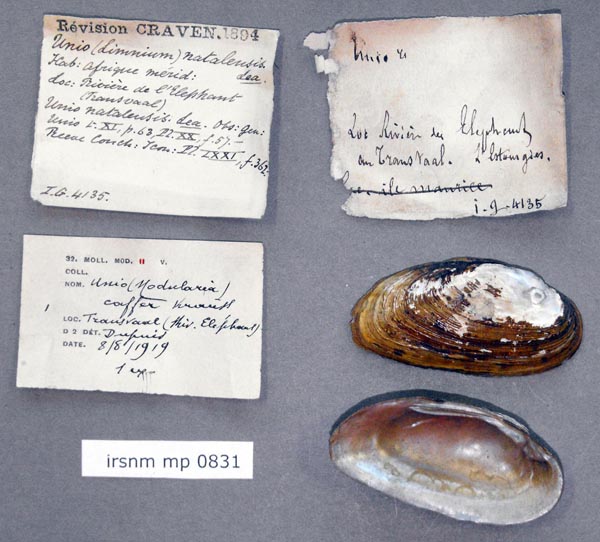 Révision CRAVEN.1894
Unio (Limnium) natalensis
Hab: Afrique mérid: Lea.
Loc: Rivière de l'Elephant
(Transvaal)
Unio natalensis Lea. Obs: Gen:
Unio t. XI, p. 63, Pl. XX, f. 57.—
Reeve Conch: Icon: Pl. LXXI, f. 362.
I.G. 4135.
Unio
Loc Rivière des Elephants
au Transvaal.
Loc. ile maurice
i.g. 4135
32. MOLL. MOD. II V.
COLL.
NOM. Unio (Nodularia)
caffer Krauss
LOC. Transvaal (Riv. Eléphant)
D 2 DÉT. Dupuis
DATE. 8/8/1919
1 ex
irsnm mp 0831